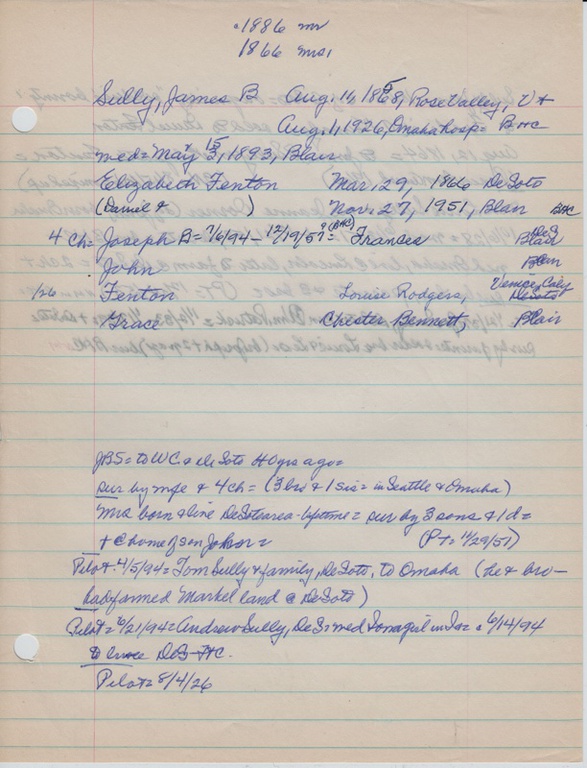 1886 mr
1866 mrs,
Sully, James B Aug. 11, 1868, Rose Valley, Vt
Aug. 1, 1926, Omaha hosp = BHC
med = May 15, 1893, Blair
Elizabeth Fenton Mar. 29, 1866 DeSoto
(Daniel & ) Nov. 27, 1951, Blair BHC
4 ch = Joseph B = 7/6/94 - 12/19/57 = (BHC) Frances Blair DeS
John Blair
1/26 Fenton Louise Rodgers, Venice, Caly DeSoto
Grace Chester Bennett, Blair
JBS = to WC & DeSoto 40 yrs ago =
sur by wife & 4 ch = (3 bro & 1 sis = in Seattle & Omaha)
Mrs born & live DeSoto area - lifetime = sur by 3 sons & 1 d =
+ @ home of son John = (PT = 11/29/51)
Pilot 4/5/94 = Tom Sully & family, DeSoto, to Omaha (he & bro-
had farmed Markel land @ DeSoto)
Pilot = 6/21/94 = Andrew Sully, DeS = med Iowa girl in Ia = 6/14/94
DeS
Pilot = 8/4/26